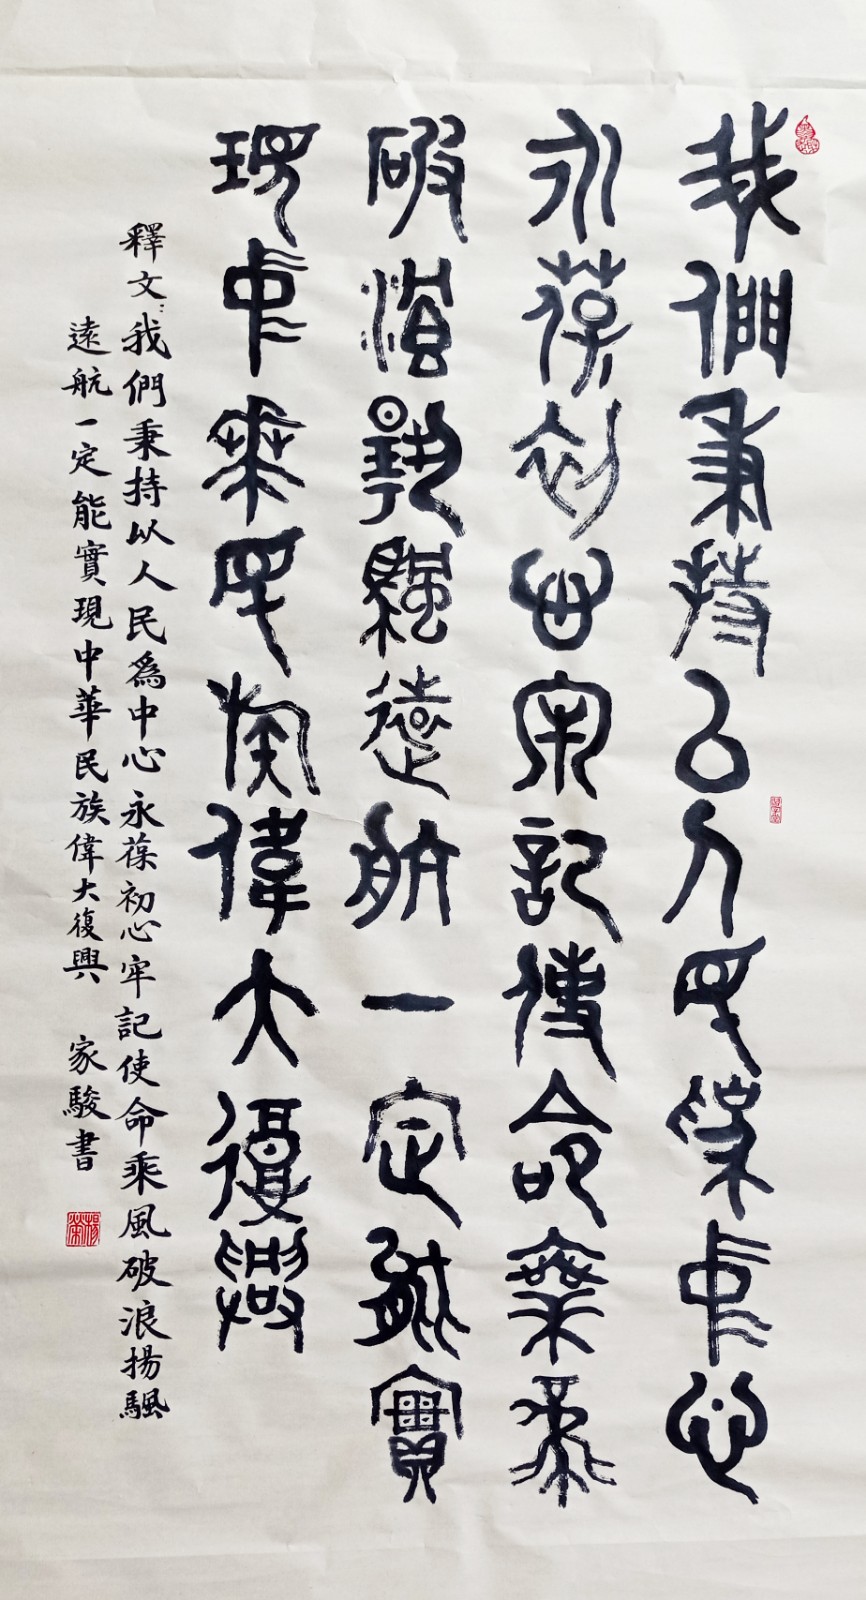 我們秉持以人民為中心
永葆初心牢記使命乘風
破浪揚颿遠航一定能實
現中華民族偉大復興
釋文：我們秉持以人民為中心永葆初心牢記使命乘風破浪揚颿
遠航一定能實現中華民族偉大復興 家駿書